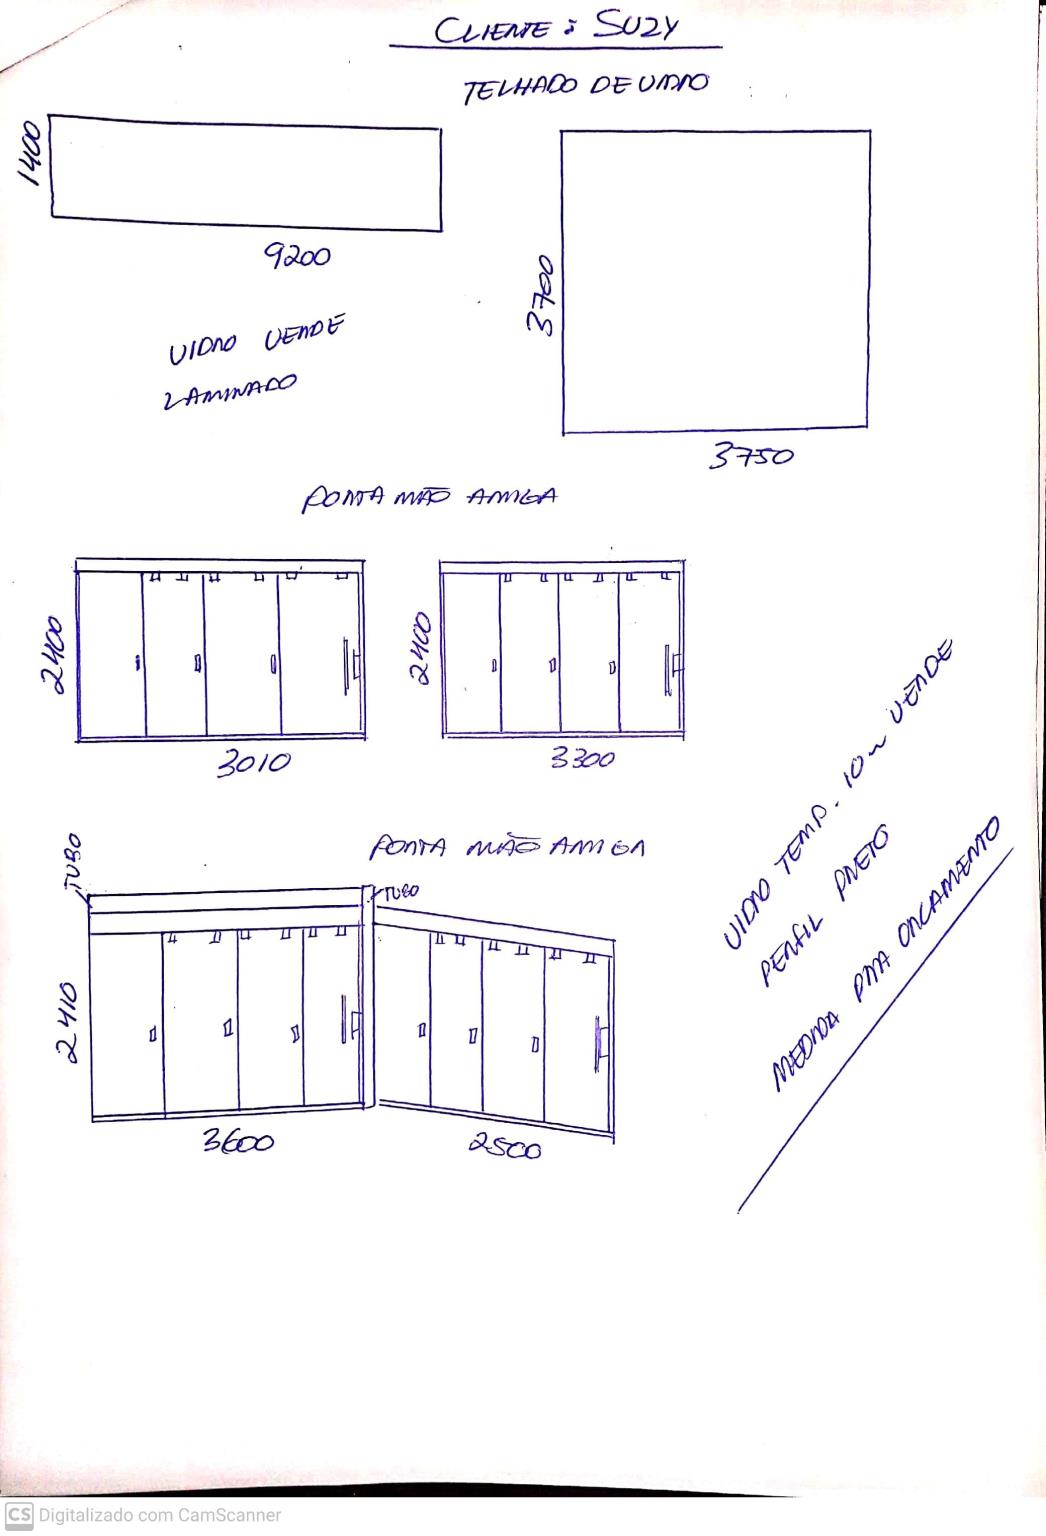 CLIENTE : SUZY
TELHADO DE VIDRO
1400
9200
3700
3750
VIDRO VERDE
LAMINADO
PORTA MÃO AMIGA
2400
3010
2400
3300
PORTA MÃO AMIGA
TUBO
TUBO
2410
3600
2500
VIDRO TEMP. 10m VERDE
PERFIL PRETO
MEDIDA PARA ORCAMENTO
CS Digitalizado com CamScanner